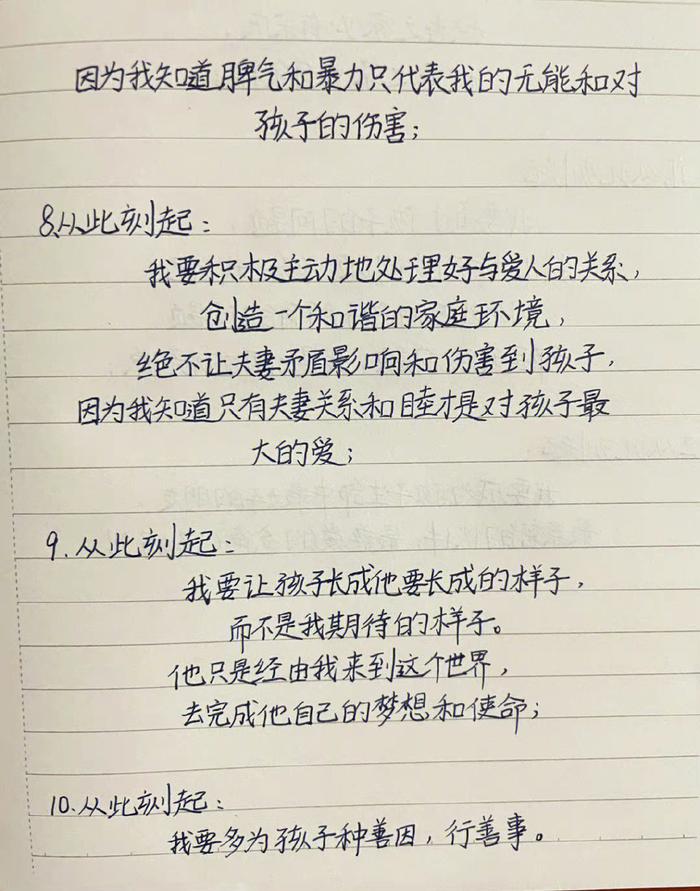 因为我知道脾气和暴力只代表我的无能和对
孩子的伤害;
8.从此刻起:
我要积极主动地处理好与爱人的关系,
创造一个和谐的家庭环境,
绝不让夫妻矛盾影响和伤害到孩子,
因为我知道只有夫妻关系和睦才是对孩子最
大的爱;
9.从此刻起:
我要让孩子长成他要长成的样子,
而不是我期待的样子。
他只是经由我来到这个世界,
去完成他自己的梦想和使命;
10.从此刻起:
我要多为孩子种善因,行善事。